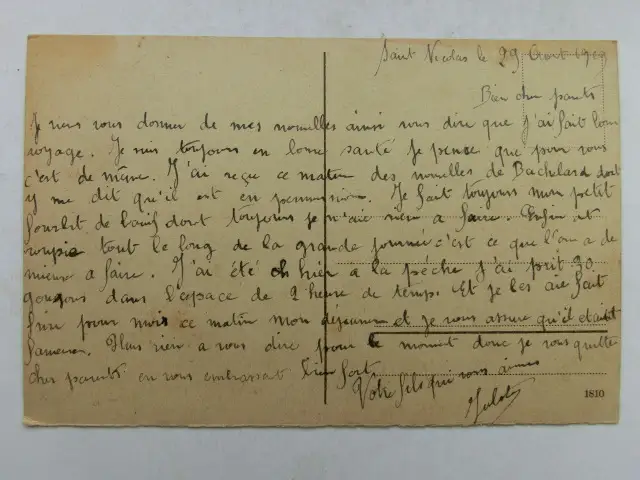 Saint Nicolas le 29 Aout 1909
Bien cher parents
Je viens vous donner de mes nouvelles ainsi vous dire que j'ai fait bon
voyage. Je suis toujours en bonne santé je pense que pour vous
c'est de même. J'ai reçu ce matin des nouvelles de Bachelard dont
y me dit qu'il est en permission. Je fait toujours mon petit
fourbit de dont toujours je n'aie rien a faire. Enfin at
tout le long de la grande journée c'est ce que l'on a de
mieux a faire. J'ai été hier a la pêche j'ai prit 30
goujons dans l'espace de 2 heure de temps. Et je les aie fait
frire pour mois ce matin mon déjeuner et je vous assure qu'il etait
fameux. Plus rien a vous dire pour le moment donc je vous quitte
cher parents en vous embrassant bien fort.
Votre fils qui vous aimes
Julot
1810